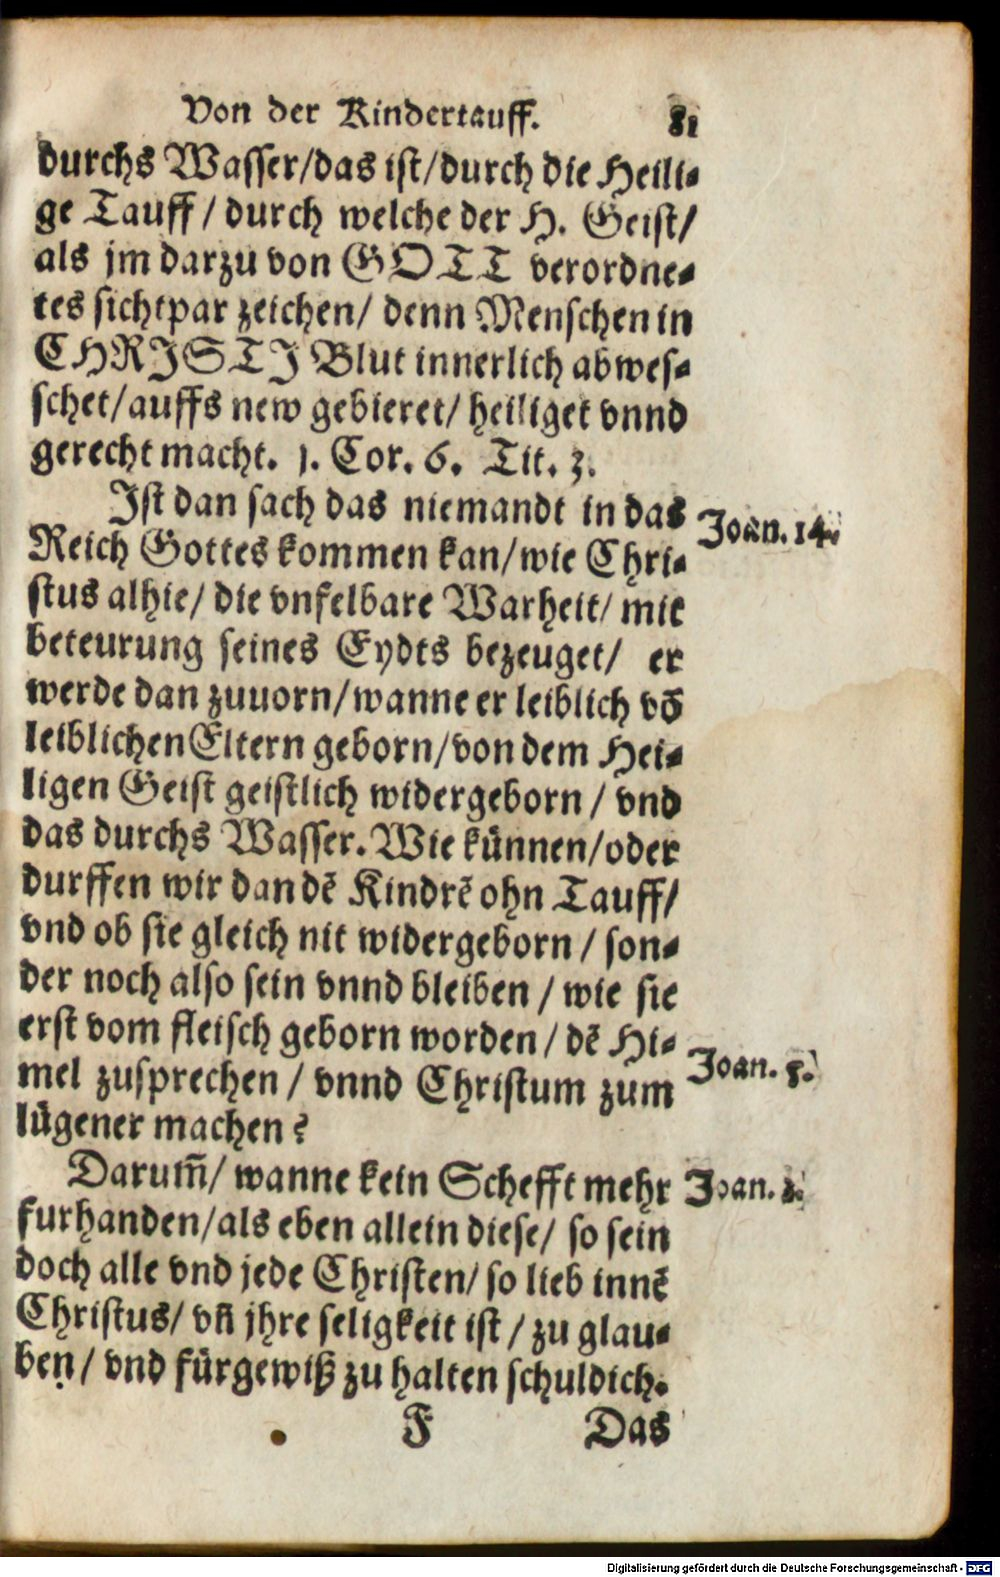 Von der Kindertauff. 81
durchs Wasser/das ist/durch die Heili-
ge Tauff/ durch welche der H. Geist/
als jm darzu von GOTT verordne-
tes sichtpar zeichen/ denn Menschen in
CHRISTI Blut innerlich abwes-
schet/auffs new gebieret/ heiliget vnnd
gerecht macht. 1. Cor. 6. Tit. 3.
Ist dan sach das niemandt in das
Joan. 14.
Reich Gottes kommen kan/wie Chri-
stus alhie/ die vnfelbare Warheit/ mit
beteurung seines Eydts bezeuget/ er
werde dan zuuorn/wanne er leiblich vō
leiblichen Eltern geborn/von dem Hei-
ligen Geist geistlich widergeborn/ vnd
das durchs Wasser. Wie künnen/oder
durffen wir dan dē Kindrē ohn Tauff/
vnd ob sie gleich nit widergeborn/ son-
der noch also sein vnnd bleiben/ wie sie
erst vom fleisch geborn worden/ dē Hi-
Joan.
mel zusprechen/ vnnd Christum zum
lügener machen?
Darum̄/ wanne kein Schefft mehr
Joan.
furhanden/als eben allein diese/ so sein
doch alle vnd jede Christen/ so lieb innē
Christus/ vn̄ jhre seligkeit ist/ zu glau-
ben/ vnd fürgewiß zu halten schuldich.
F Das
Digitalisierung gefördert durch die Deutsche Forschungsgemeinschaft - DFG